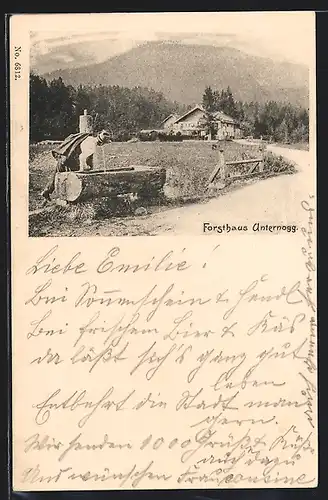 No. 6812.
Forsthaus Unternogg.
Liebe Emilie!
Bei Sonnenschein & Hendl
Bei frischem Bier & Käs
da läßt sich's ganz gut
leben
Entbehrt die Stadt man
gern.
Wir senden 1000 Grüße & Küße
auch dazu
Und wünschen